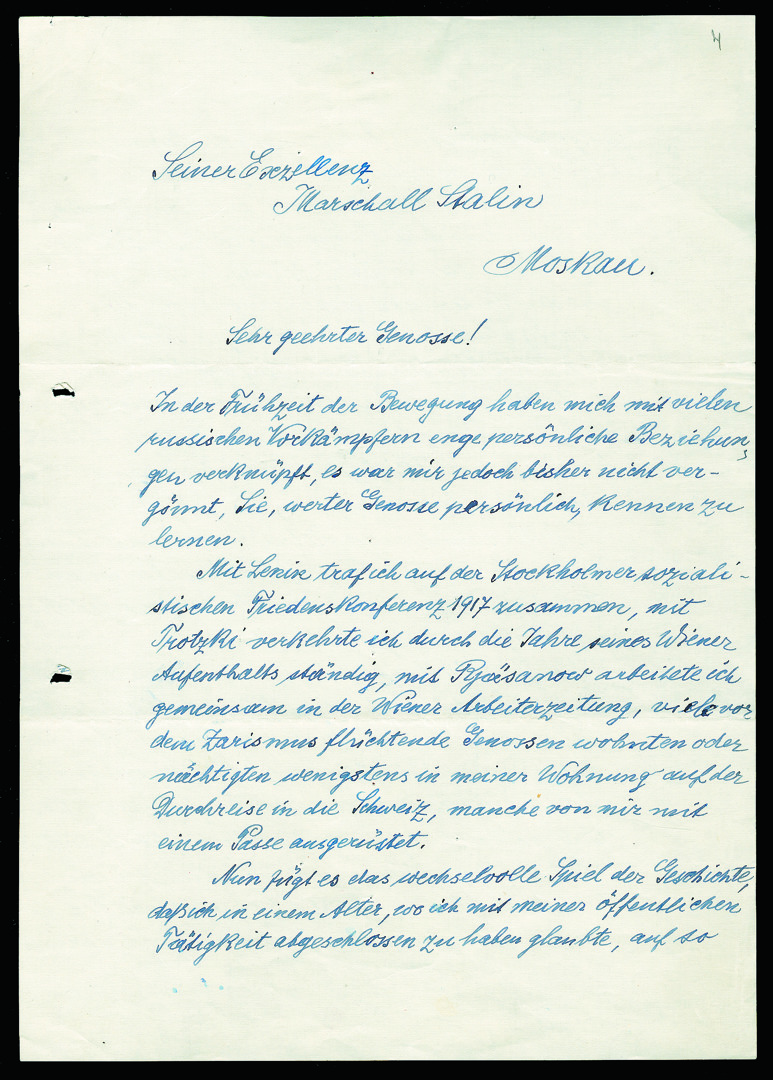 4
Seiner Exzellenz
Marschall Stalin
Moskau.
Sehr geehrter Genosse!
In der Frühzeit der Bewegung haben mich mit vielen
russischen Vorkämpfern enge persönliche Beziehun-
gen verknüpft, es war mir jedoch bisher nicht ver-
gönnt, Sie, werter Genosse persönlich, kennen zu
lernen.
Mit Lenin traf ich auf der Stockholmer soziali-
stischen Friedenskonferenz 1917 zusammen, mit
Trotzki verkehrte ich durch die Jahre seines Wiener
Aufenthalts ständig, mit Rjäsanow arbeitete ich
gemeinsam in der Wiener Arbeiterzeitung, viele vor
dem Zarismus flüchtende Genossen wohnten oder
nächtigten wenigstens in meiner Wohnung auf der
Durchreise in die Schweiz, manche von mir mit
einem Passe ausgerüstet.
Nun fügt es das wechselvolle Spiel der Geschichte,
daß ich in einem Alter, wo ich mit meiner öffentlichen
Tätigkeit abgeschlossen zu haben glaubte, auf so